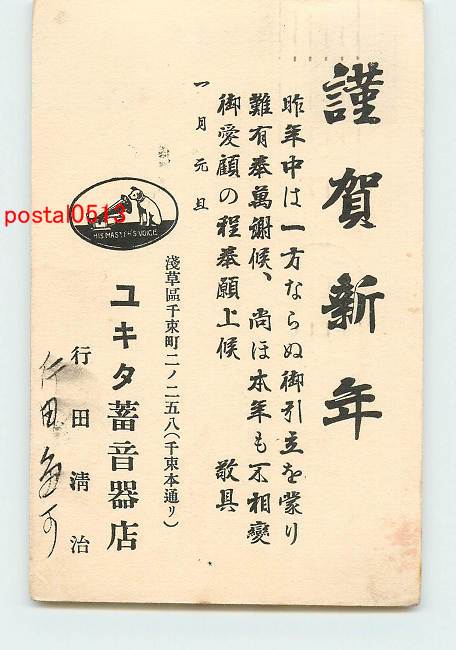 謹賀新年
昨年中は一方ならぬ御引立を蒙り
難有奉萬謝候、尚ほ本年も不相變
御愛顧の程奉願上候 敬具
一月元旦
HIS MASTER'S VOICE
淺草區千束町二ノ二五八(千束本通リ)
ユキタ蓄音器店
行田淸治
postal0513